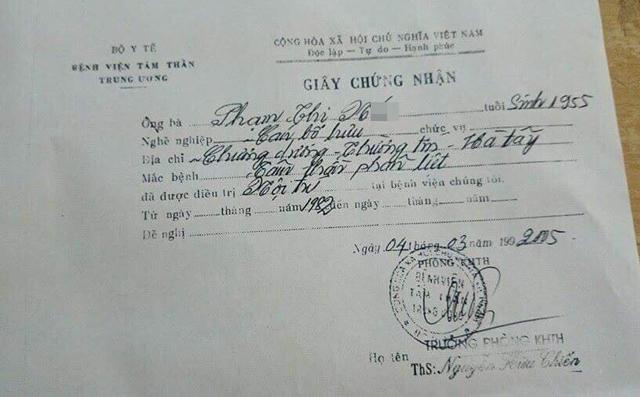 CỘNG HÒA XÃ HỘI CHỦ NGHĨA VIỆT NAM
Độc lập - Tự do - Hạnh phúc
BỘ Y TẾ
BỆNH VIỆN TÂM THẦN
TRUNG ƯƠNG
GIẤY CHỨNG NHẬN
Ông bà Phạm Thị tuổi Sinh 1955
Nghề nghiệp Cán bộ hưu chức vụ
Địa chỉ Chương dương - Thường tín - Hà tây
Mắc bệnh Tâm thần phân liệt
đã được điều trị Nội trú tại bệnh viện chúng tôi.
Từ ngày tháng năm 1982 đến ngày tháng năm
Đề nghị
Ngày 04 tháng 03 năm 199 2005
PHÒNG KHTH
BỆNH VIỆN
TÂM THẦN
TRUNG ƯƠNG
TRƯỞNG PHÒNG KHTH
Họ tên
ThS: Nguyễn Hữu Chiến